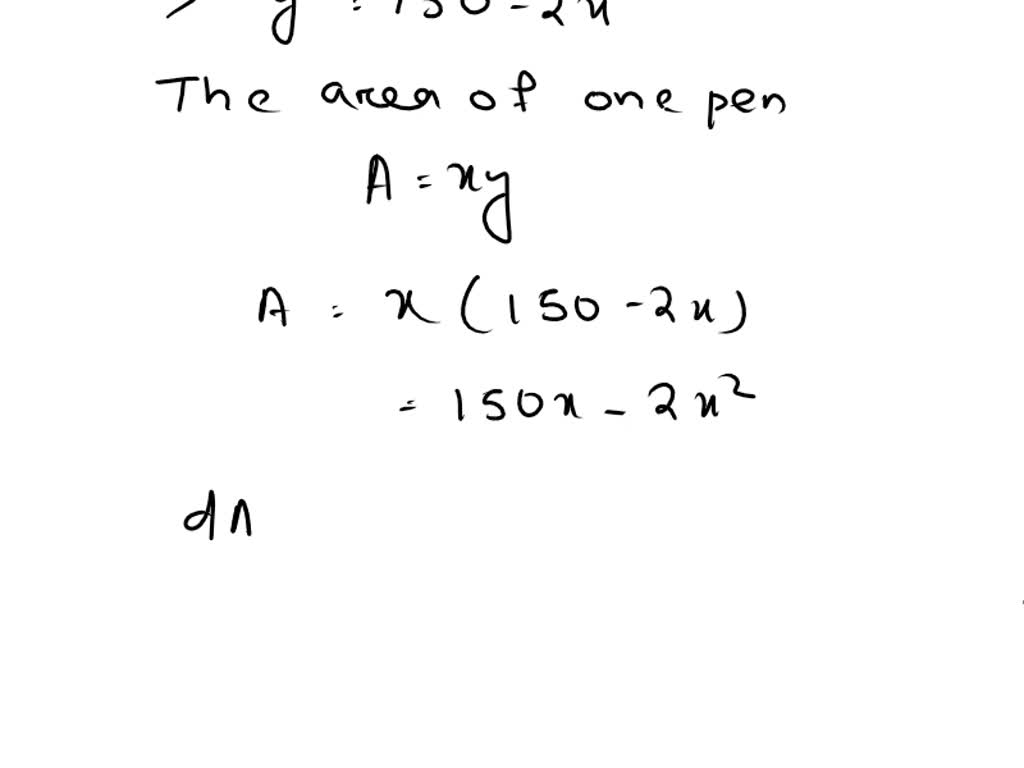 y = 150 - 2x
The area of one pen
A = xy
A = x (150 - 2x)
= 150x - 2x²
dA